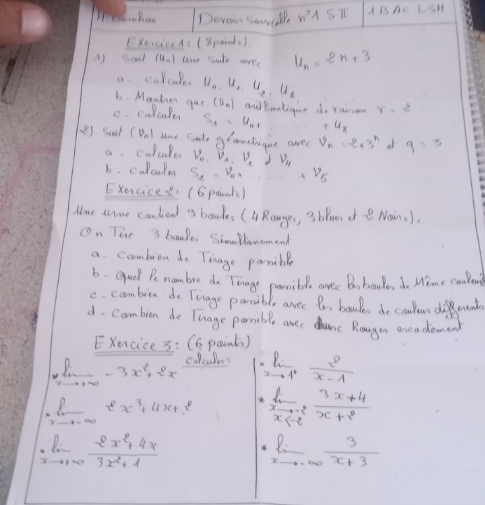 Devoir Surveillé n°1 SII 1 BAC LSH
Exercice 1: (8 points)
1) Soit (Un) une suite avec Un = 2n + 3
a. calculer U0, U1, U2, U8
b. Montrer que (Un) arithmétique de raison r = 2
c. calculer S1 = U0+ + U8
2) Soit (Vn) une suite géométrique avec Vn = 2×3^n et q = 3
a. calculer V0, V1, V2 et V4
b. calculer S2 = V0+ ..... + V5
Exercice 2: (6 points)
Une urne contient 9 boules (4 Rouges, 3 blues et 2 Noirs),
On Tire 3 boules Simultanement
a. combien de Tirage possible
b - Quel le nombre de Tirage possible avec les boules de Même couleur
c - combien de Tirage possible avec les boules de couleur différents
d - combien de Tirage possible avec Rouges exactement
Exercice 3: (6 points)
calculer:
• lim x→+∞ -3x²+2x
• lim x→-∞ 2x³+4x+2
• lim x→+∞ (2x²+4x)/(3x²+1)
• lim x→1+ 2/(x-1)
• lim x→-2 x<-2 (3x+4)/(x+2)
• lim x→-∞ 3/(x+3)